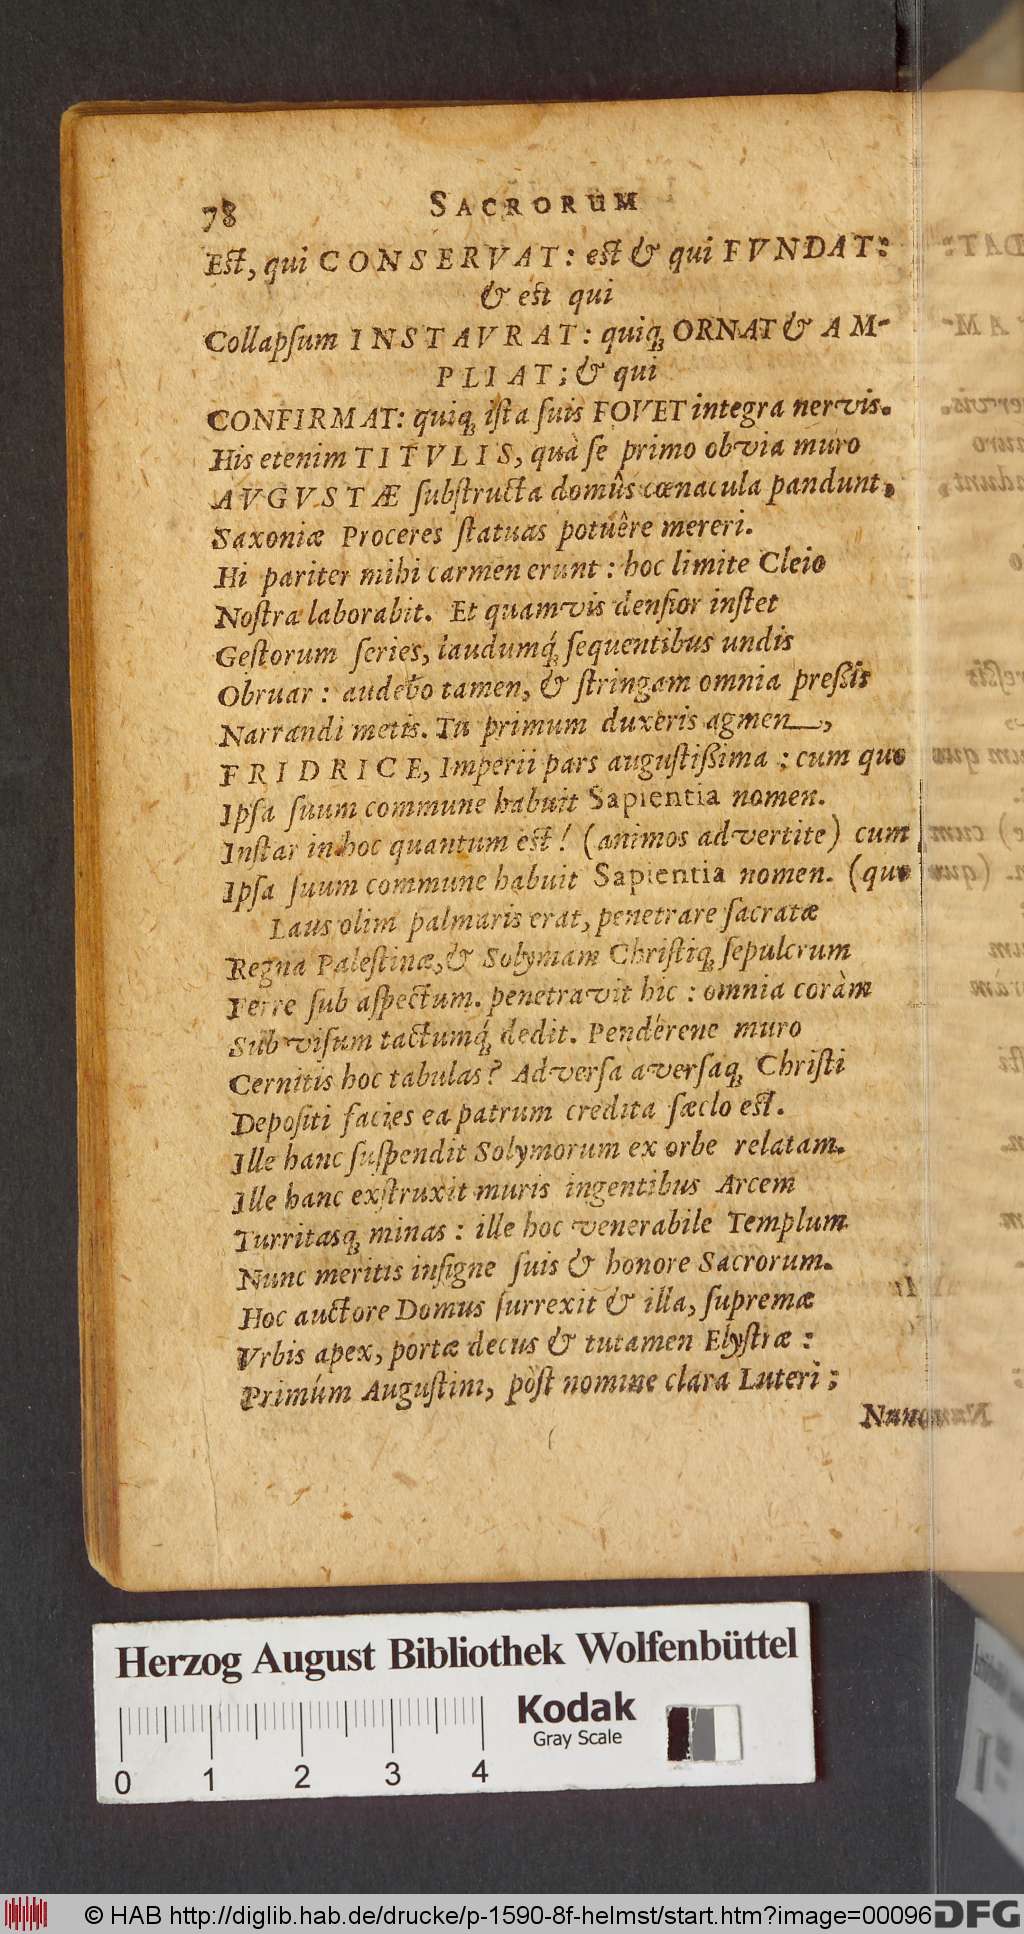 78 SACRORUM
Eſt, qui CONSERVAT: eſt & qui FVNDAT:
& eſt qui
Collapſum INSTAVRAT: quiq; ORNAT & AM-
PLIAT; & qui
CONFIRMAT: quiq; iſta ſuis FOVET integra nervis.
His etenim TITVLIS, quà ſe primo obvia muro
AVGVSTÆ ſubſtructa domûs cœnacula pandunt,
Saxoniæ Proceres ſtatuas potuêre mereri.
Hi pariter mihi carmen erunt: hoc limite Cleio
Noſtra laborabit. Et quamvis denſior inſtet
Geſtorum ſeries, laudumq́; ſequentibus undis
Obruar: audebo tamen, & ſtringam omnia preſſis
Narrandi metis. Tu primum duxeris agmen,
FRIDRICE, Imperii pars auguſtiſſima: cum quo
Ipſa ſuum commune habuit Sapientia nomen.
Inſtar in hoc quantum eſt! (animos advertite) cum
Ipſa ſuum commune habuit Sapientia nomen. (quo
Laus olim palmaris erat, penetrare ſacratæ
Regna Paleſtinæ, & Solymam Chriſtiq; ſepulcrum
Ferre ſub aſpectum. penetravit hic: omnia coràm
Sub viſum tactumq́; dedit. Pendérene muro
Cernitis hoc tabulas? Adverſa averſaq; Chriſti
Depoſiti facies ea patrum credita ſæclo eſt.
Ille hanc ſuſpendit Solymorum ex orbe relatam.
Ille hanc exſtruxit muris ingentibus Arcem
Turritasq; minas: ille hoc venerabile Templum
Nunc meritis inſigne ſuis & honore Sacrorum.
Hoc auctore Domus ſurrexit & illa, ſupremæ
Vrbis apex, portæ decus & tutamen Elyſtræ:
Primúm Auguſtini, pòſt nomine clara Luteri;
Herzog August Bibliothek Wolfenbüttel
Kodak
Gray Scale
0 1 2 3 4
© HAB http://diglib.hab.de/drucke/p-1590-8f-helmst/start.htm?image=00096
DFG